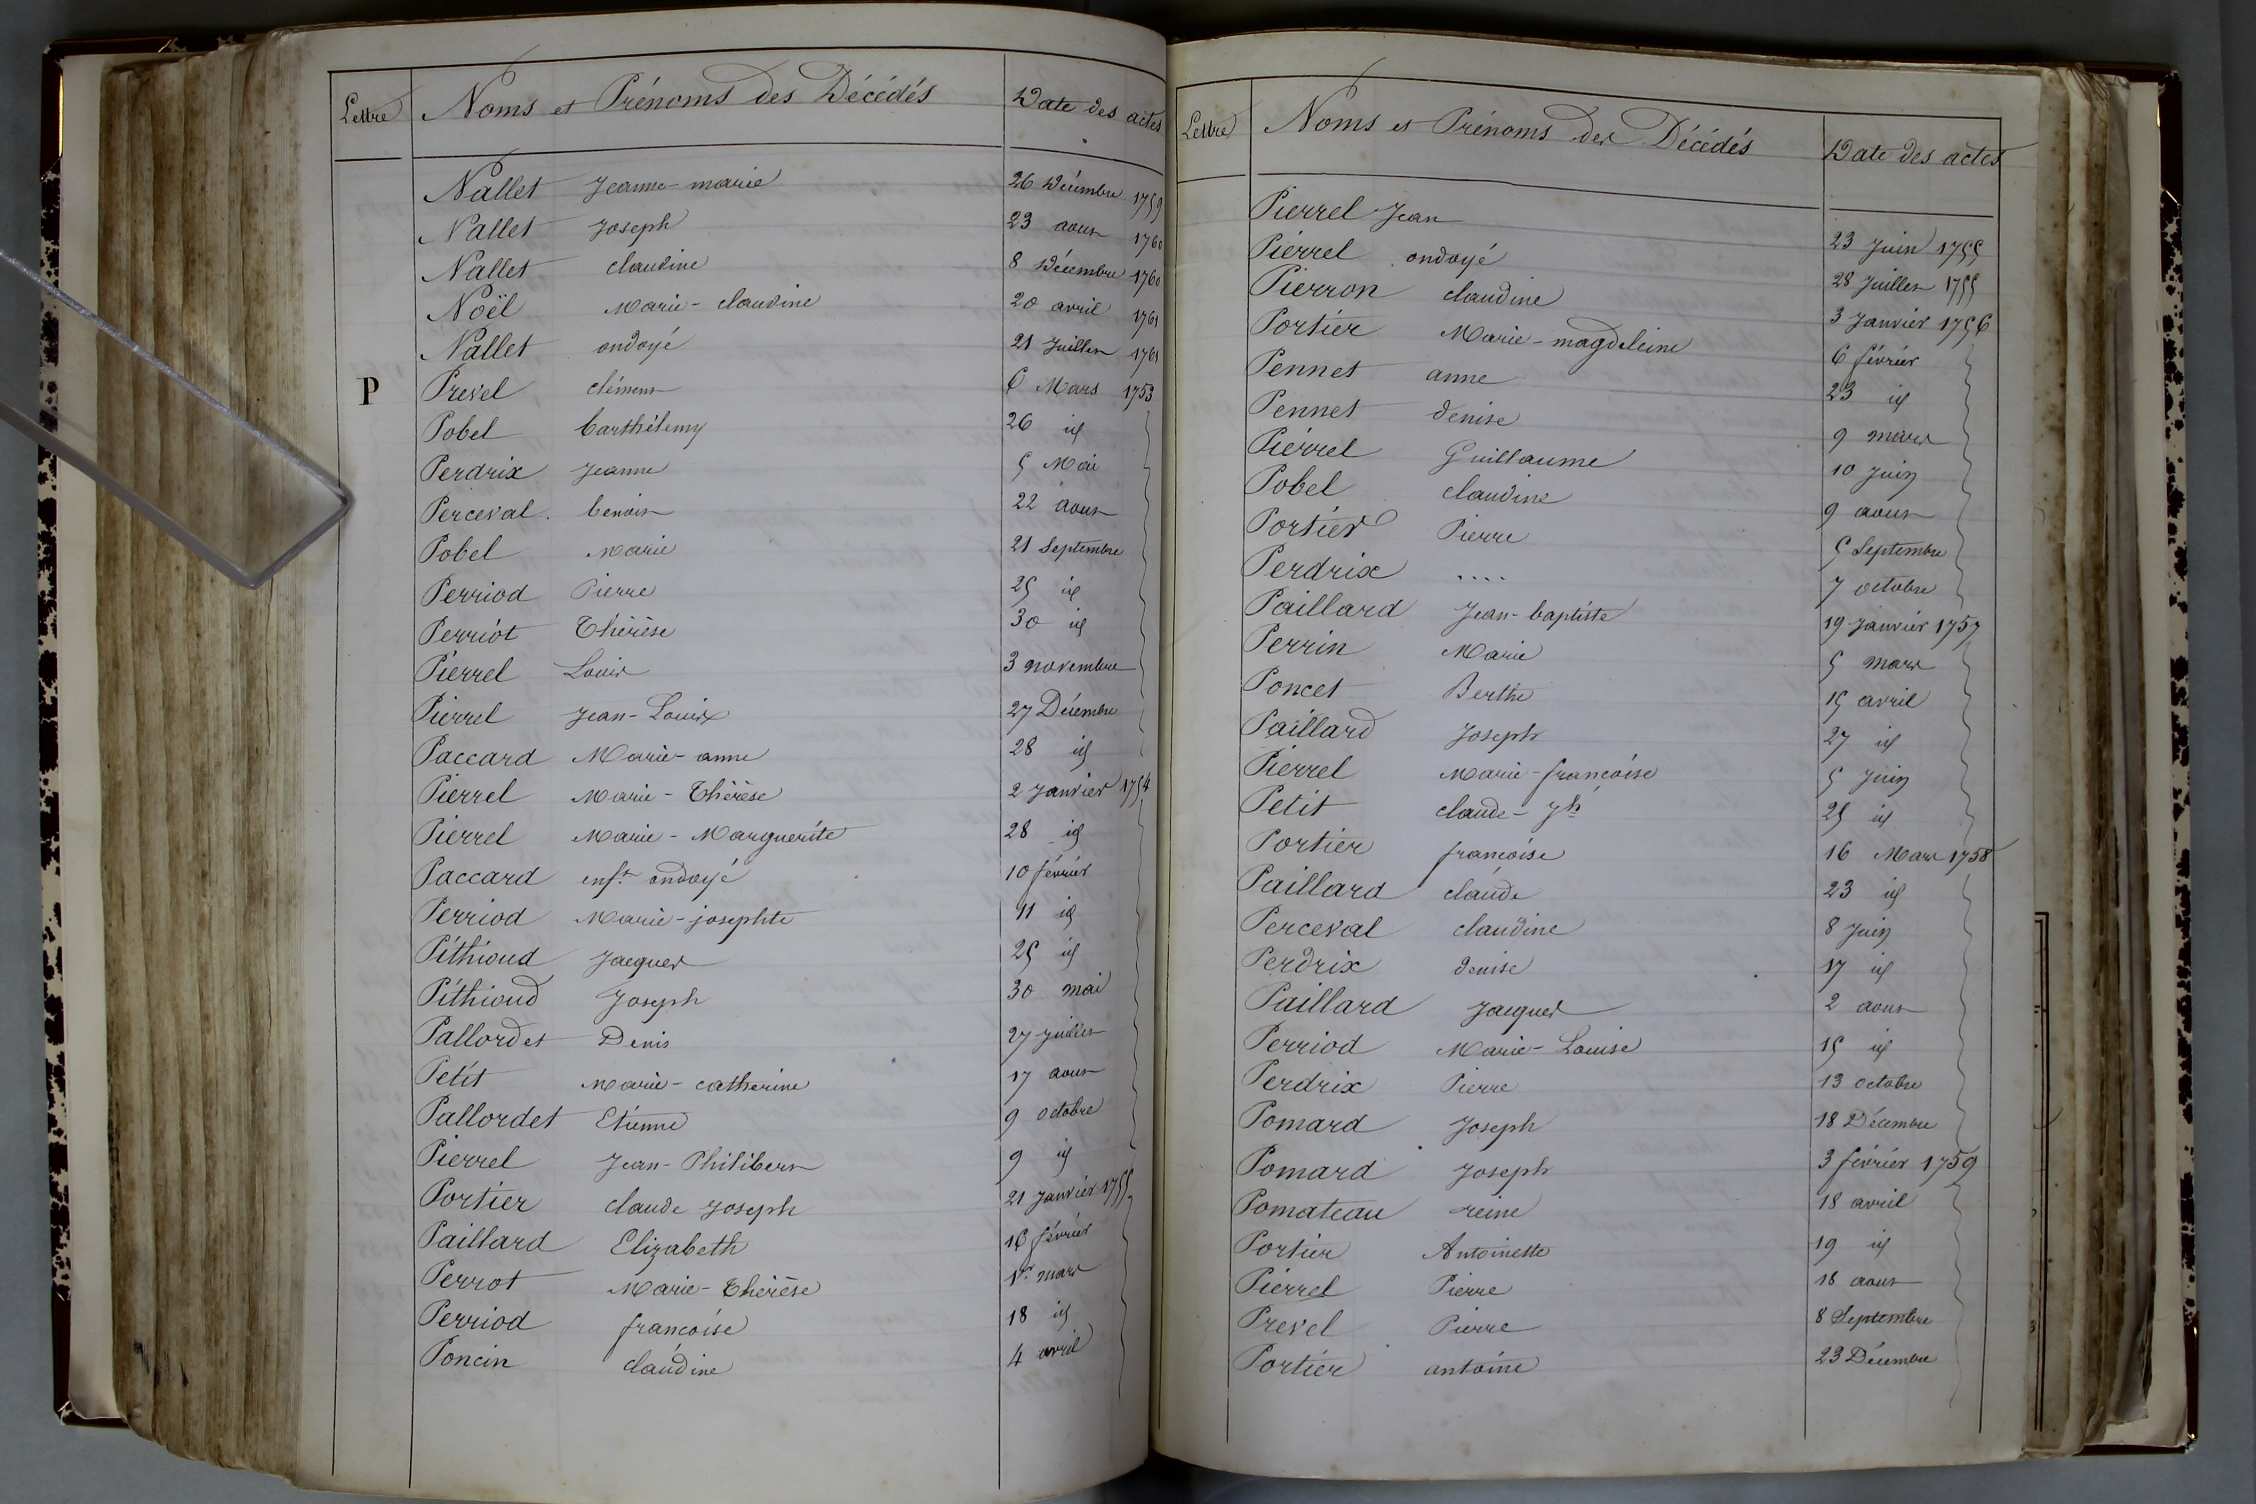 Lettre Noms et Prénoms des Décédés Date des actes
Nallet Jeanne-marie 26 Décembre 1759
Nallet Joseph 23 aout 1760
Nallet claudine 8 Décembre 1760
Noël Marie-claudine 20 avril 1761
Nallet ondoyé 21 Juillet 1761
P Prevel clément 6 Mars 1753
Pobel barthélemy 26 id
Perdrix Jeanne 5 Mai
Perceval benoit 22 aout
Pobel Marie 21 Septembre
Perriod Pierre 25 id
Perriot Thérèse 30 id
Pierrel Louis 3 novembre
Pierrel Jean-Louis 27 Décembre
Paccard Marie-anne 28 id
Pierrel Marie-Thérèse 2 Janvier 1754
Pierrel Marie-Marguerite 28 id
Paccard enft ondoyé 10 février
Perriod Marie-josephte 11 id
Pithioud Jacques 25 id
Pithioud Joseph 30 mai
Pallordet Denis 27 juillet
Petit Marie-catherine 17 aout
Pallordet Etienne 9 octobre
Pierrel Jean-Philibert 9 id
Portier claude Joseph 21 Janvier 1755
Paillard Elizabeth 16 février
Perrot Marie-Thérèse 1er mars
Perriod françoise 18 id
Poncin claudine 4 avril
Lettre Noms et Prénoms des Décédés Date des actes
Pierrel Jean 23 Juin 1755
Pierrel ondoyé 28 Juillet 1755
Pierron claudine 3 Janvier 1756
Portier Marie-magdeleine 6 février
Pennet anne 23 id
Pennet denise 9 mars
Pierrel Guillaume 10 Juin
Pobel claudine 9 aout
Portier Pierre 5 Septembre
Perdrix .... 7 octobre
Paillard Jean-baptiste 19 Janvier 1757
Perrin Marie 5 mars
Poncet Berthe 15 avril
Paillard Joseph 27 id
Pierrel Marie-françoise 5 Juin
Petit claude-Jh 25 id
Portier françoise 16 Mars 1758
Paillard claude 23 id
Perceval claudine 8 Juin
Perdrix denise 17 id
Paillard Jacques 2 aout
Perriod Marie-Louise 15 id
Perdrix Pierre 13 octobre
Pomard Joseph 18 Décembre
Pomard Joseph 3 février 1759
Pomateau reine 18 avril
Portier Antoinette 19 id
Pierrel Pierre 18 aout
Prevel Pierre 8 Septembre
Portier antoine 23 Décembre